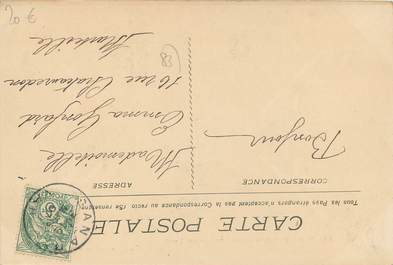 CARTE POSTALE
Tous les Pays étrangers n'acceptent pas la Correspondance au recto (Se renseigner
CORRESPONDANCE
ADRESSE
Bonjour
Mademoiselle
Emma
16 rue
Marseille
83
20 €